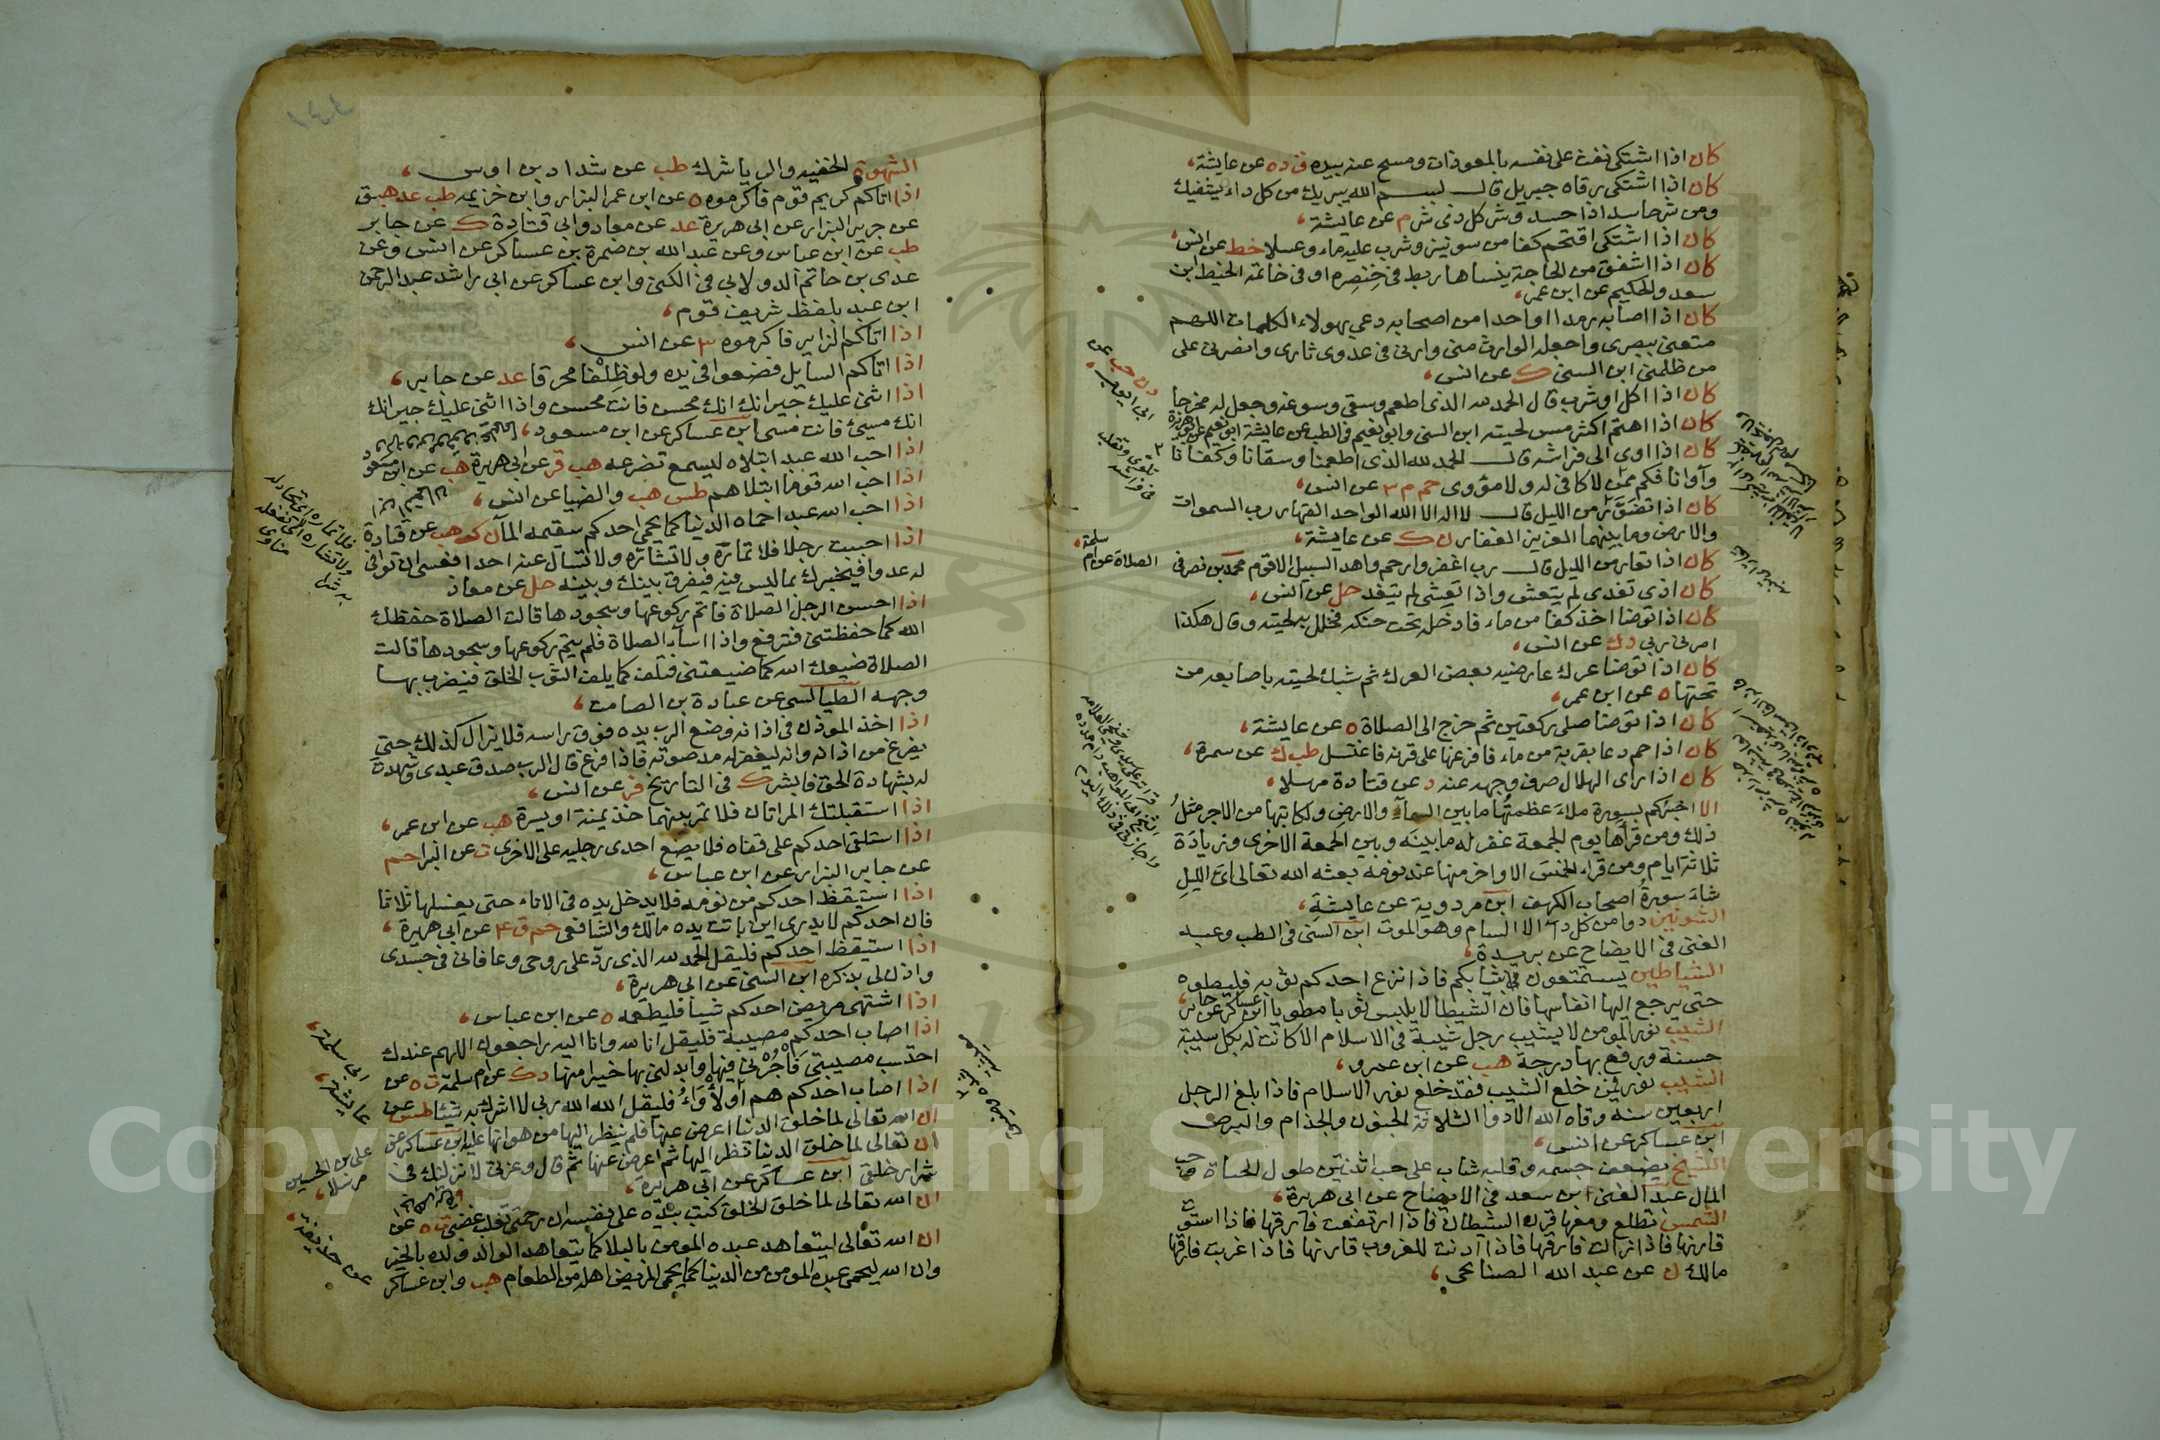 كان اذا اشتكى نفث على نفسه بالمعوذات ومسح عنه بيده ق د ه عن عايشة،
كان اذا اشتكى رقاه جبريل قال بسم الله يبريك من كل داء يشفيك
ومن شر حاسد اذا حسد وشر كل ذى شر م عن عايشة،
كان اذا اشتكى اقتحم كفا من سونيز وشرب عليه ماء وعسلا خط عن انس،
كان اذا اشفق من الحاجة ينساها ربط في خنصره او في خاتمه الخيط ابن
سعد والحكيم عن ابن عمر،
كان اذا اصابه رمد او احدا من اصحابه دعى بهولاء الكلمات اللهم
متعنى ببصرى واجعله الوارث منى وارنى فى عدوى ثارى وانصرنى على
من ظلمنى ابن السنى ك عن انس،
كان اذا اكل او شرب قال الحمد لله الذى اطعم وسقى وسوغه وجعل له مخرجا
كان اذا اهتم اكثر مس لحيته ابن السنى وابو نعيم فى الطب عن عايشة ابو نعيم عن ابى هريرة
كان اذا اوى الى فراشه قال الحمد لله الذى اطعمنا وسقانا وكفانا
وآوانا فكم ممن لا كافى له ولا مؤوى حم م ٣ عن انس،
كان اذا تضور من الليل قال لا اله الا الله الواحد القهار رب السموات
والارض وما بينهما العزيز الغفار ن ك عن عايشة،
كان اذا تعار من الليل قال رب اغفر وارحم واهد السبيل الاقوم محمد بن نصر فى
الصلاة عن ام سلمة،
كان اذا تغدى لم يتعش واذا تعشى لم يتغد حل عن انس،
كان اذا توضا اخذ كفا من ماء فادخله تحت حنكه فخلل به لحيته وقال هكذا
امرنى ربى د ك عن انس،
كان اذا توضا عرك عارضيه بعض العرك ثم شبك لحيته باصابعه من
تحتها ه عن ابن عمر،
كان اذا توضا صلى ركعتين ثم خرج الى الصلاة ه عن عايشة،
كان اذا حم دعا بقربة من ماء فافرغها على قرنه فاغتسل طب ك عن سمرة،
كان اذا راى الهلال صرف وجهه عنه د عن قتادة مرسلا،
الا اخبركم بسورة ملاء عظمتها ما بين السماء والارض ولكاتبها من الاجر مثل
ذلك ومن قراها يوم الجمعة غفر له ما بينه وبين الجمعة الاخرى وزيادة
ثلاثة ايام ومن قراء الخمس الاواخر منها عند نومه بعثه الله تعالى اى الليل
شاء سورة اصحاب الكهف ابن مردوية عن عايشة،
الشونيز دوا من كل داء الا السام وهو الموت ابن السنى فى الطب وعبد
الغنى فى الايضاح عن بريدة،
الشياطين يستمتعون بثيابكم فاذا نزع احدكم ثوبه فليطوه
حتى يرجع اليها انفاسها فان الشيطان لا يلبس ثوبا مطويا ابن عساكر عن جابر،
الشيب نور المومن لا يشيب رجل شيبة فى الاسلام الا كانت له بكل شيبة
حسنة ورفع بها درجة هب عن ابن عمرو،
الشيب نور فمن خلع الشيب فقد خلع نور الاسلام فاذا بلغ الرجل
اربعين سنة وقاه الله الادوا الثلاثة الجنون والجذام والبرص
ابن عساكر عن انس،
الشيخ يضعف جسمه وقلبه شاب على حب اثنتين طول الحياة وحب
المال عبد الغنى ابن سعد فى الايضاح عن ابى هريرة،
الشمس تطلع ومعها قرن الشيطان فاذا ارتفعت فارقها فاذا استوت
قارنها فاذا زالت فارقها فاذا دنت للغروب قارنها فاذا غربت فارقها
مالك ن عن عبد الله الصنابحى،
الشهوة الخفيه والريا شرك طب عن شداد بن اوس،
اذا اتاكم كريم قوم فاكرموه ه عن ابن عمر البزار وابن خزيمه طب عد هب ق
عن جرير البزار عن ابى هريرة عد عن معاذ وابى قتادة ك عن جابر
طب عن ابن عباس وعن عبد الله بن ضمرة بن عساكر عن انس وعن
عدى بن حاتم الدولابى فى الكنى وابن عساكر عن ابى راشد عبد الرحمن
ابن عبد بلفظ شريف قوم،
اذا اتاكم الزاير فاكرموه ٣ عن انس،
اذا اتاكم السايل فضعوا فى يده ولو ظلفا محرقا عد عن جابر،
اذا اثنى عليك جيرانك انك محسن فانت محسن واذا اثنى عليك جيرانك
انك مسيئ فانت مسى ابن عساكر عن ابن مسعود،
اذا احب الله عبد ابتلاه ليسمع تضرعه هب فر عن ابى هريرة هب عن ابن مسعود
اذا احب الله قوما ابتلاهم طس هب والضيا عن انس،
اذا احب الله عبد احماه الدنيا كما يحمى احدكم سقمه الماء ن ك هب عن قتادة
اذا احببت رجلا فلا تماره ولا تشاره ولا تسال عنه احدا فعسى ان توافى
له عدوا فيخبرك بما ليس فيه فيفرق بينك وبينه حل عن معاذ
اذا احسن الرجل الصلاة فاتم ركوعها وسجودها قالت الصلاة حفظك
الله كما حفظتنى فترفع واذا اساء الصلاة فلم يتم ركوعها وسجودها قالت
الصلاة ضيعك الله كما ضيعتنى فتلف كما يلف الثوب الخلق فيضرب بها
وجهه الطيالسى عن عبادة بن الصامت،
اذا اخذ الموذن فى اذانه وضع الرب يده فوق راسه فلا يزال كذلك حتى
يفرغ من اذانه وانه ليغفر له مد صوته فاذا فرغ قال الرب صدق عبدى وشهدت
له بشهادة الحق فابشر ك فى التاريخ فر عن انس،
اذا استقبلتك المراتان فلا تمر بينهما خذ يمنة او يسرة هب عن ابن عمر،
اذا استلقى احدكم على قفاه فلا يضع احدى رجليه على الاخرى ت عن البرا حم
عن جابر البزار عن ابن عباس،
اذا استيقظ احدكم من نومه فلا يدخل يده فى الاناء حتى يغسلها ثلاثا
فان احدكم لا يدرى اين باتت يده مالك والشافعى حم ق ٤ عن ابى هريرة،
اذا استيقظ احدكم فليقل الحمد لله الذى رد على روحى وعافانى فى جسدى
واذن لى بذكره ابن السنى عن ابى هريرة،
اذا اشتهى مريض احدكم شيا فليطعمه ه عن ابن عباس،
اذا اصاب احدكم مصيبة فليقل انا لله وانا اليه راجعون اللهم عندك
احتسب مصيبتى فاجرنى فيها وابدلنى بها خيرا منها د ك عن ام سلمة ت ه عن
ابى سلمة،
اذا اصاب احدكم هم او لأواء فليقل الله الله ربى لا اشرك به شيئا طس عن
عايشة،
ان الله تعالى لما خلق الدنيا اعرض عنها فلم ينظر اليها من هوانها عليه ابن عساكر عن
على بن الحسين مرسلا،
ان تعالى لما خلق الدنيا نظر اليها ثم اعرض عنها ثم قال وعزتى لا انزلتك فى
شرار خلقى ابن عساكر عن ابى هريرة،
ان الله تعالى لما خلق الخلق كتب بيده على نفسه ان رحمتى تغلب غضبى ت ه عن
ان الله تعالى ليتعاهد عبده المومن بالبلا كما يتعاهد الوالد ولده بالخير
وان الله ليحمى عبده المومن من الدنيا كما يحمى المريض اهله من الطعام هب وابن عساكر
عن حذيفة،
Copyright © King Saud University
195